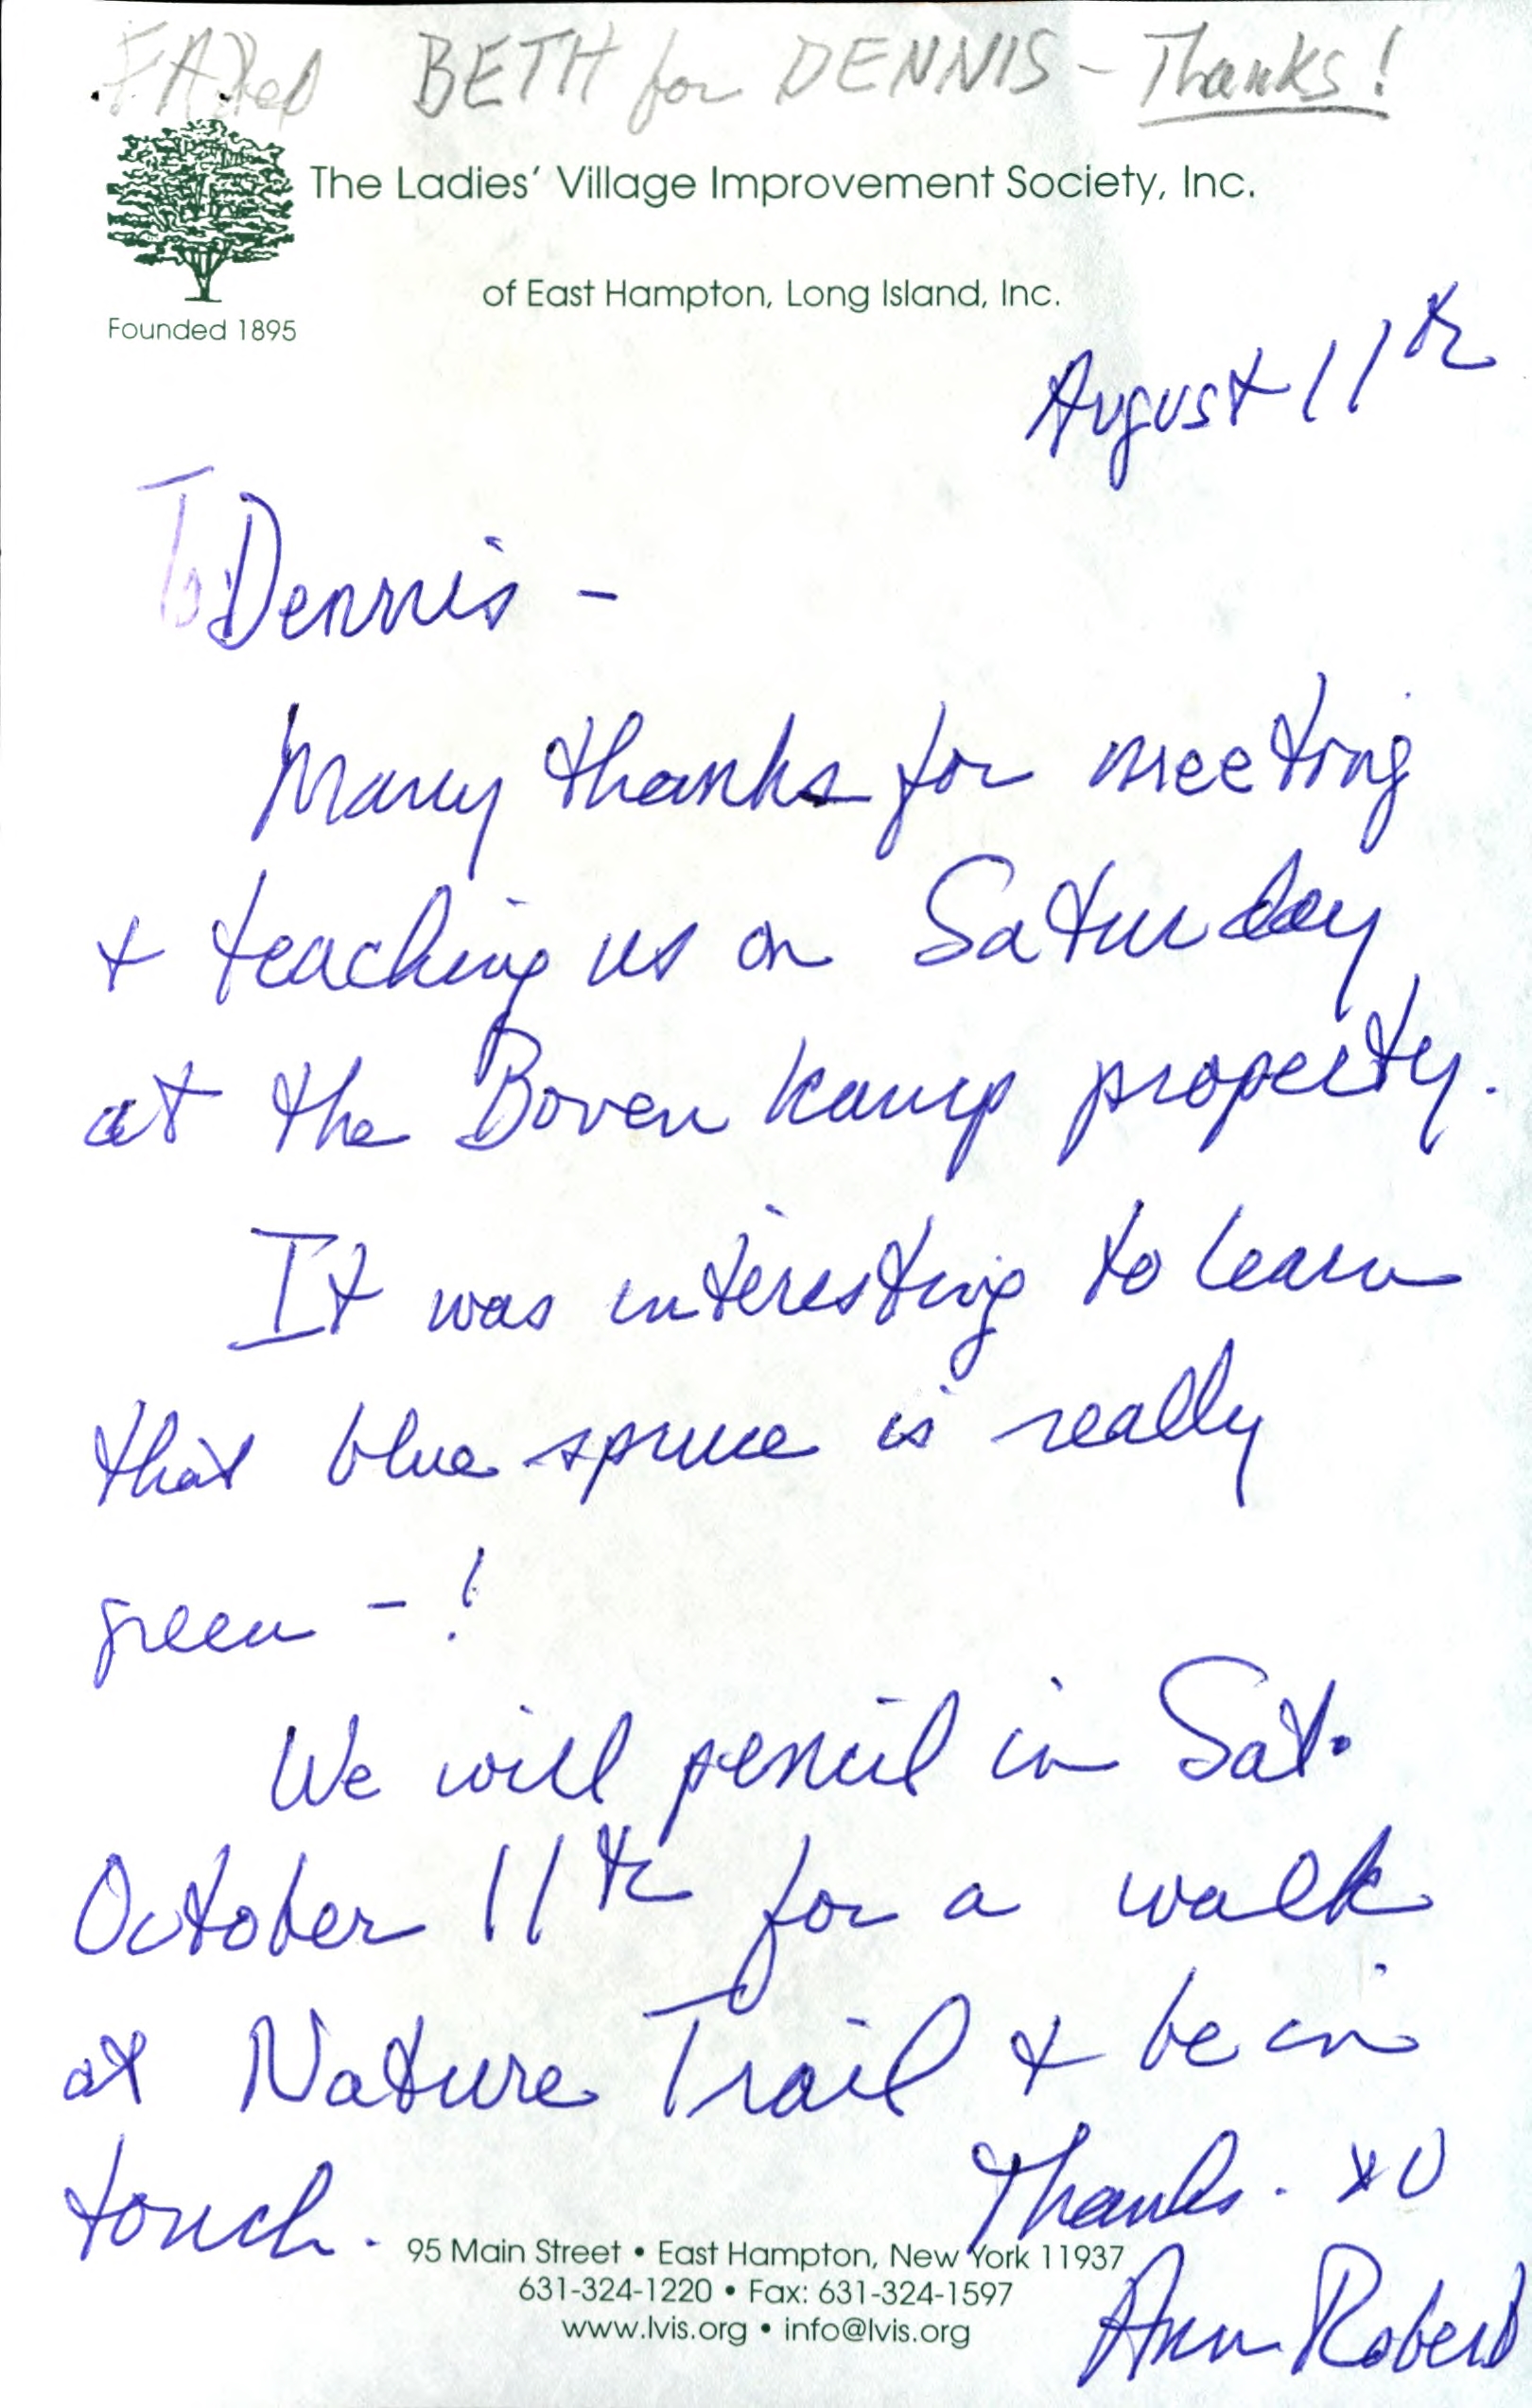 FAXed BETH for DENNIS - Thanks!
The Ladies' Village Improvement Society, Inc.
of East Hampton, Long Island, Inc.
Founded 1895
August 11th
To Dennis -
Many thanks for meeting
+ teaching us on Saturday
at the Boven kamp property.
It was interesting to learn
that blue spruce is really
green - !
We will pencil in Sat.
October 11th for a walk
at Nature Trail + be in
touch. Thanks. XO
95 Main Street • East Hampton, New York 11937
631-324-1220 • Fax: 631-324-1597
www.lvis.org • info@lvis.org
Ann Roberts